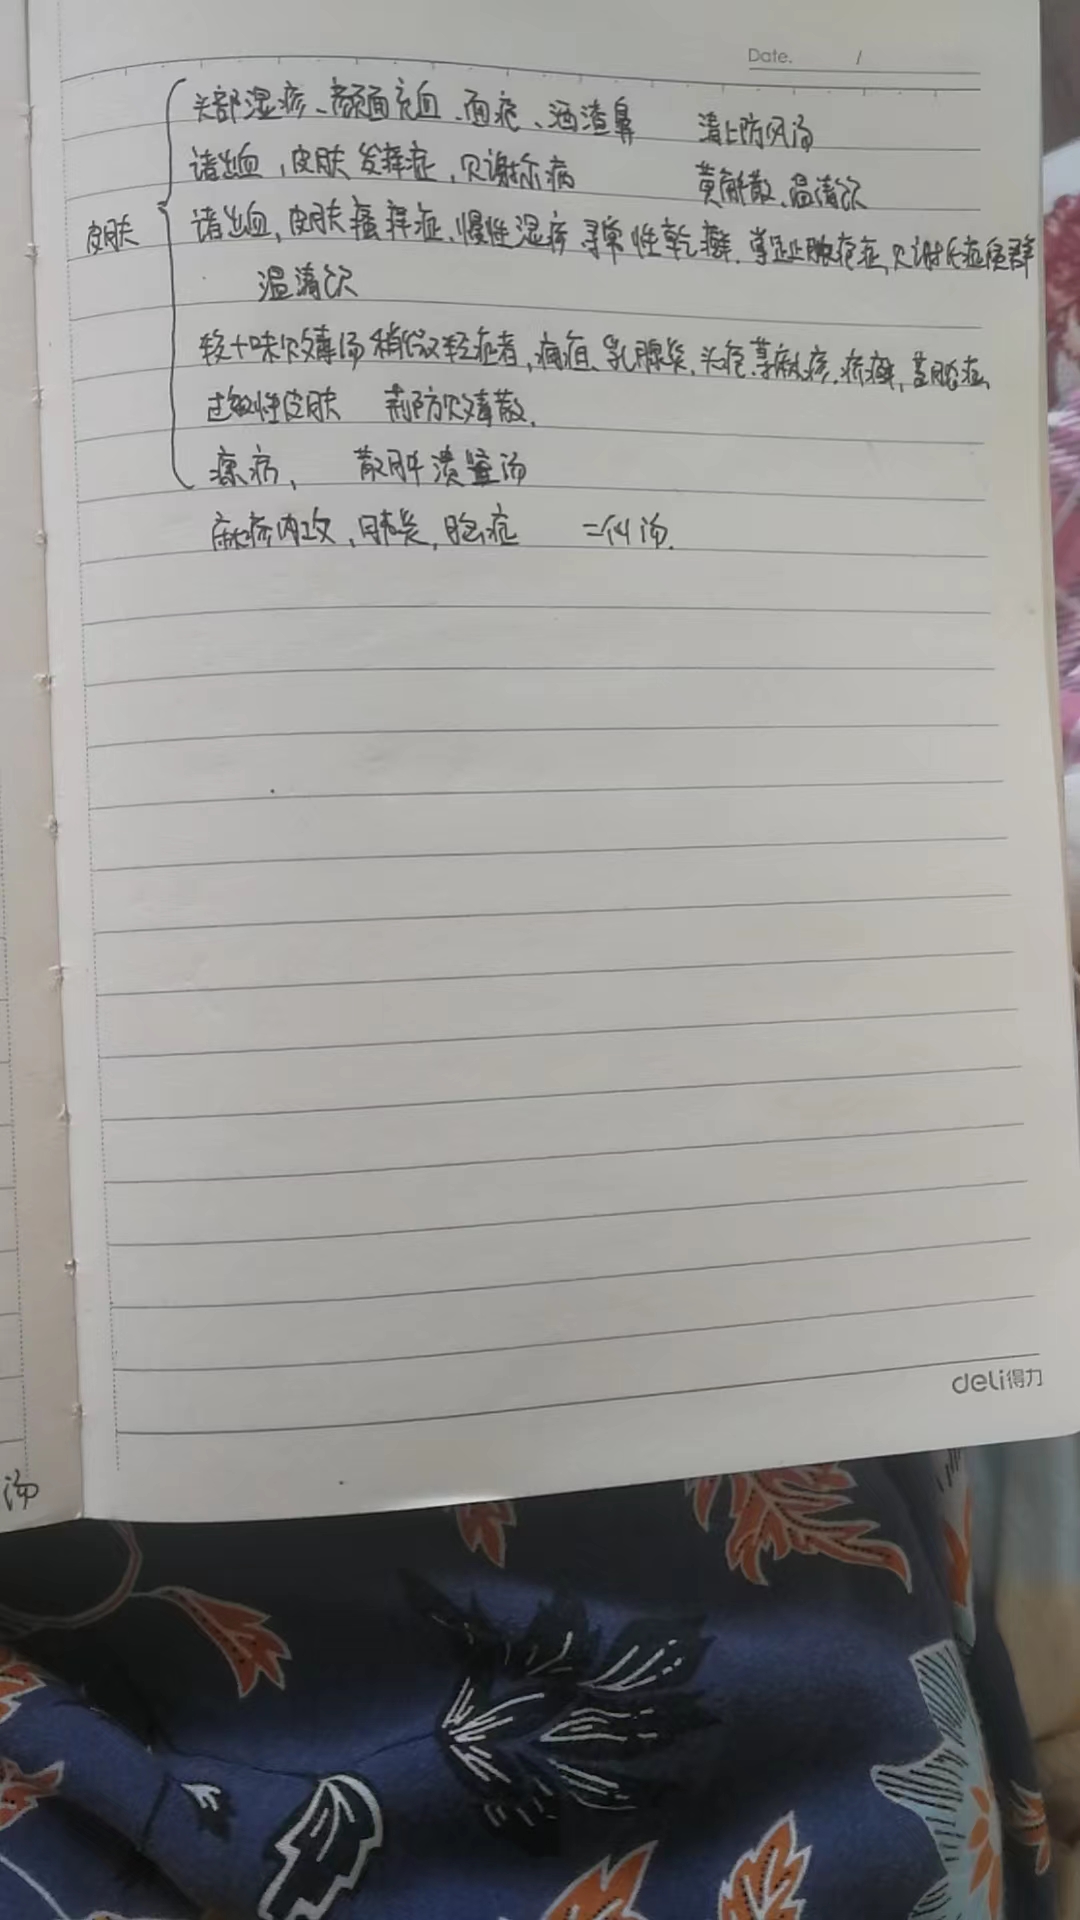 Date. /
头部湿疹、颜面充血、面疱、酒渣鼻 清上防风汤
诸出血，皮肤发痒症，贝谢尔病 黄解散、温清饮
皮肤
诸出血，皮肤瘙痒症、慢性湿疹、寻常性乾癣、掌跖脓疱症、贝谢氏症候群
温清饮
较十味败毒汤稍微轻症者，痈疽、乳腺炎、头疮、荨麻疹、疥癣、蓄脓症、
过敏性皮肤 荆防败毒散.
瘰疬、 散肿溃坚汤
麻疹内攻，肺炎，脑症 二仙汤.
deli得力
汤